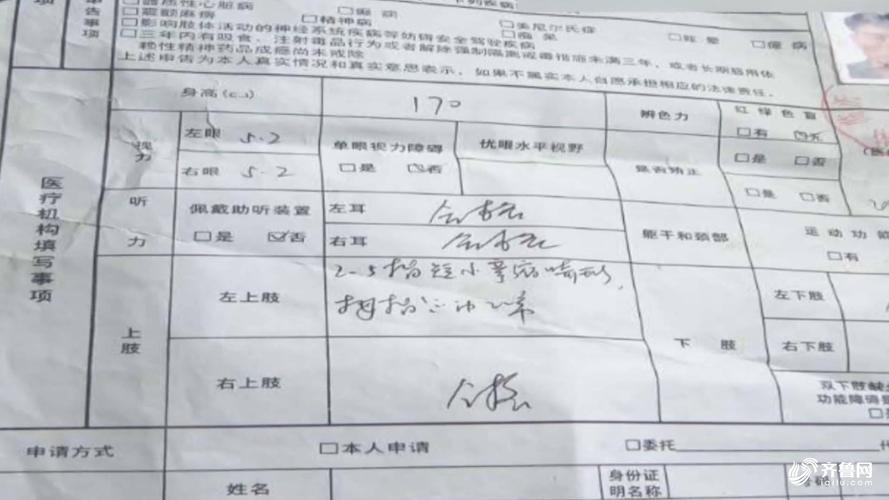 器质性心脏病 □癫痫
□震颤麻痹 □精神病 □美尼尔氏症 □眩晕 □癔病
□影响肢体活动的神经系统疾病等妨碍安全驾驶疾病 □痴呆
□三年内有吸食、注射毒品行为或者解除强制隔离戒毒措施未满三年,或者长期服用依
赖性精神药品成瘾尚未戒除
上述申告为本人真实情况和真实意思表示,如果不属实本人自愿承担相应的法律责任。
申告事项
医疗机构填写事项
身高(cm) 170 辨色力 红绿色盲
□有 ☑无
视力 左眼 5.2 单眼视力障碍 优眼水平视野 是否矫正 □是 □否
右眼 5.2 □是 ☑否 □是 □否
听力 佩戴助听装置 左耳 合格 躯干和颈部 运动功能
□是 ☑否 右耳 合格 □有
上肢 左上肢 2-5指短小 畸形, 下肢 左下肢
拇指 正常 右下肢
右上肢 合格 双下肢缺
功能障碍
□是
申请方式 □本人申请 □委托 代
姓名 身份证
明名称
齐鲁网
iqilu.com